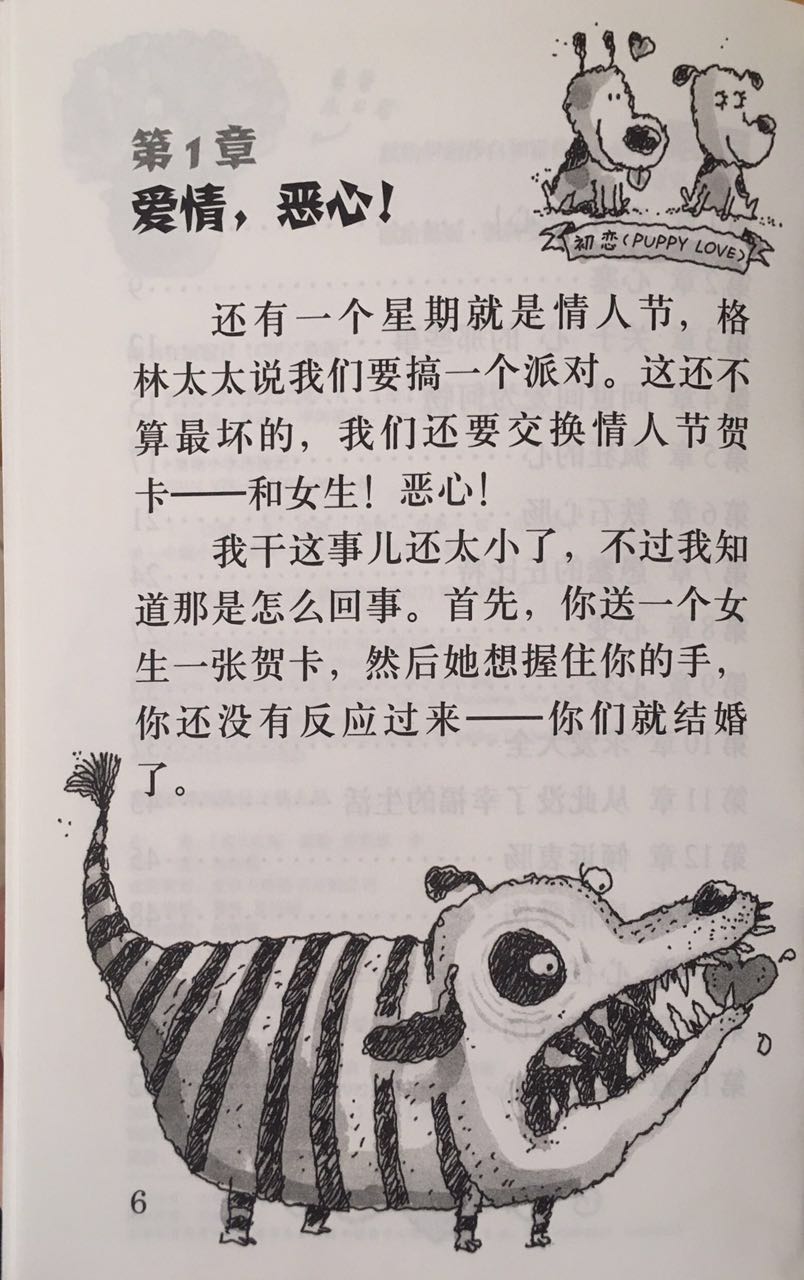 第1章
爱情，恶心！
初恋(PUPPY LOVE)
还有一个星期就是情人节，格
林太太说我们要搞一个派对。这还不
算最坏的，我们还要交换情人节贺
卡——和女生！恶心！
我干这事儿还太小了，不过我知
道那是怎么回事。首先，你送一个女
生一张贺卡，然后她想握住你的手，
你还没有反应过来——你们就结婚
了。
6